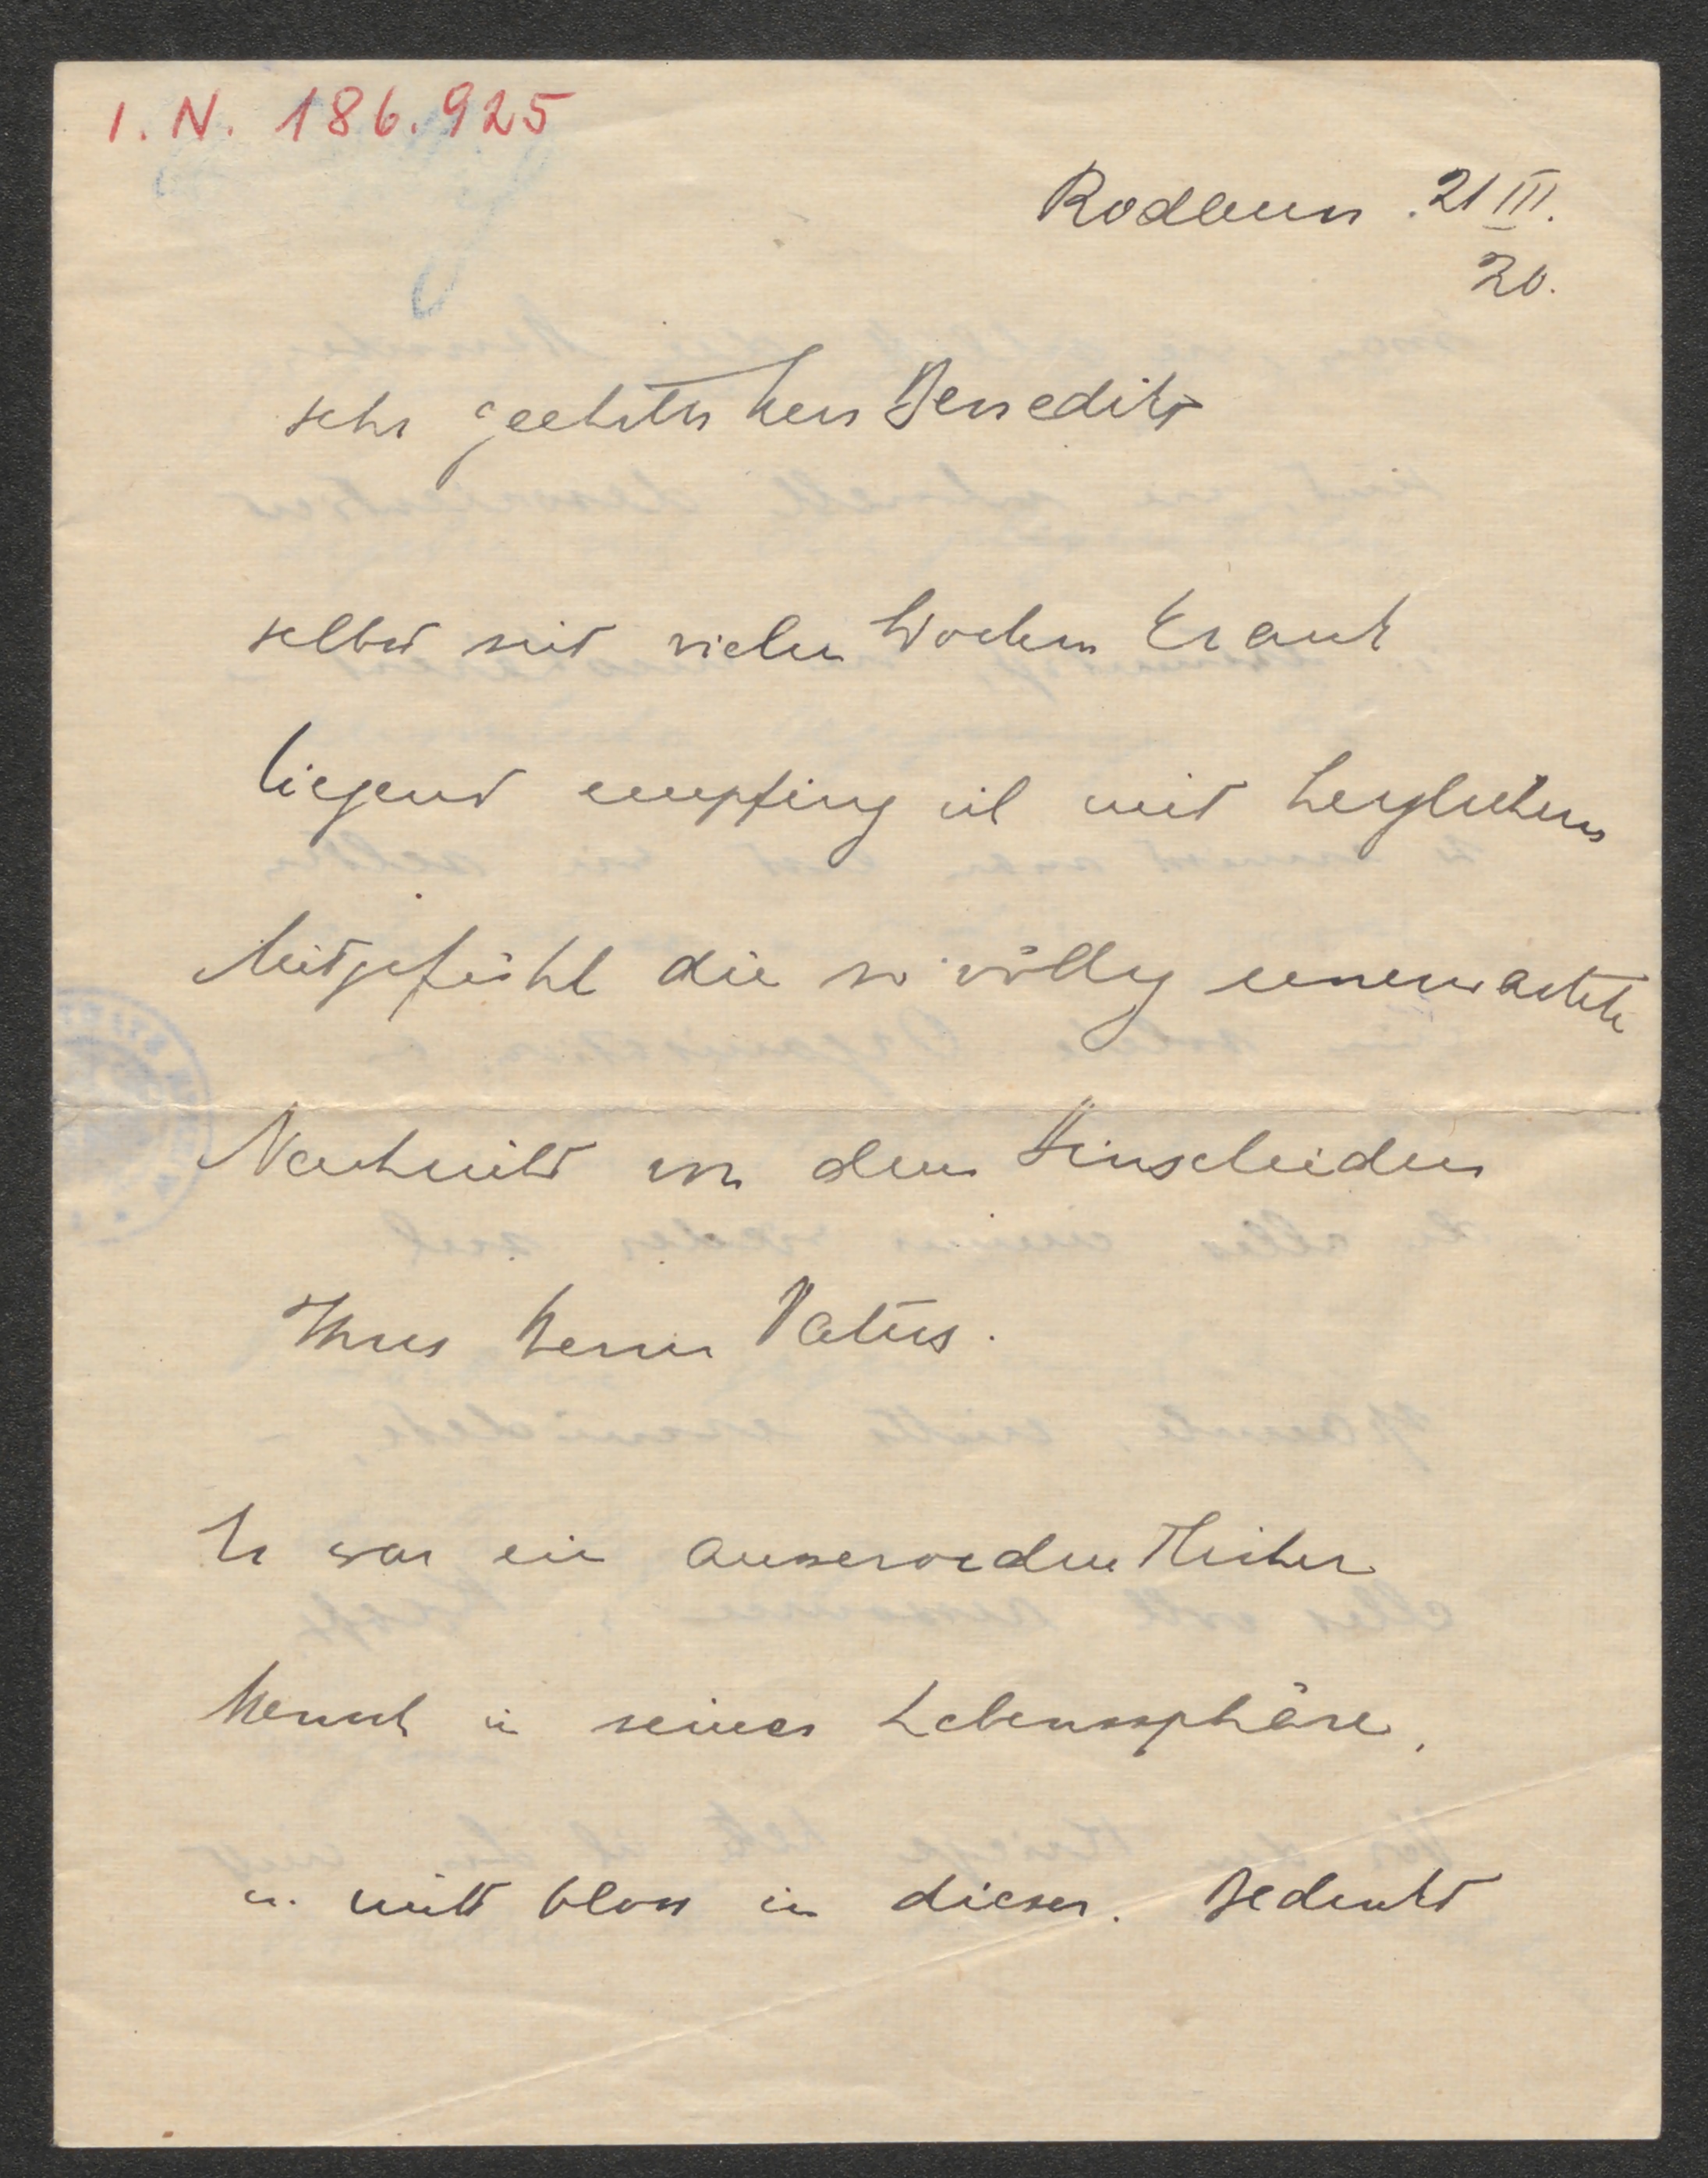 I. N. 186.925
Rodaun. 21 III.
20.
sehr geehrter Herr Benedikt
selbst seit vielen Wochen krank
liegend empfing ich mit herzlichem
Mitgefühl die so völlig unerwartete
Nachricht von dem Hinscheiden
Ihres Herrn Vaters.
Er war ein ausserordentlicher
Mensch in seiner Lebenssphäre,
u. nicht bloss in dieser. Bedenkt